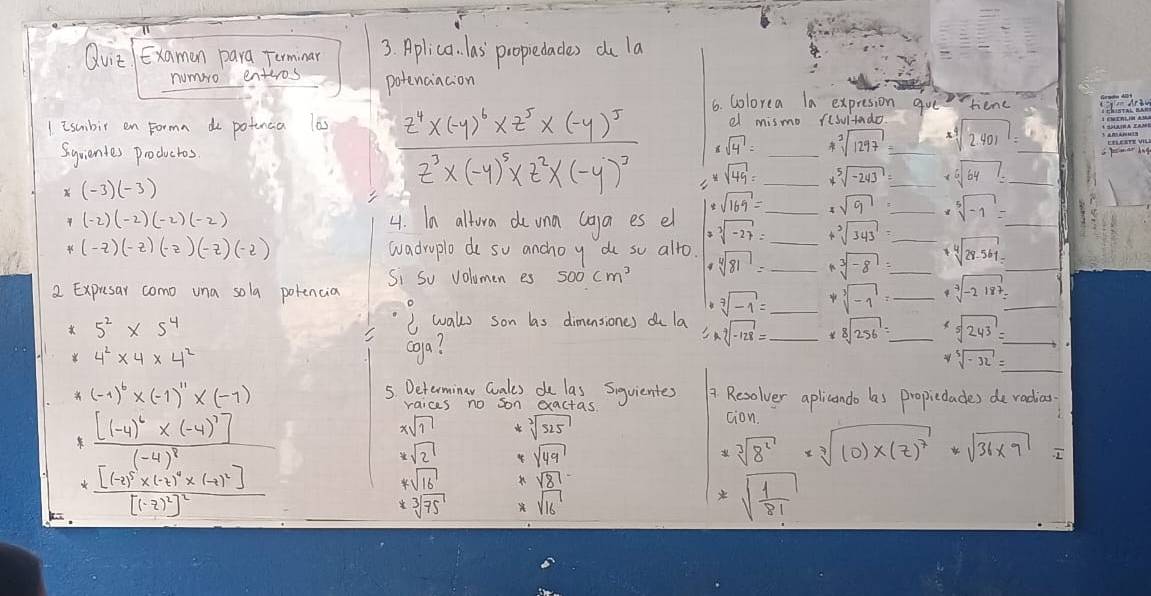 Quiz Examen para Terminar
numero enteros
1 Escribir en Forma de potencia las
Siguientes productos.
* (-3)(-3)
* (-2)(-2)(-2)(-2)
* (-z)(-z)(-z)(-z)(-z)
2 Expresar como una sola potencia
* 5² × 5⁴
* 4² × 4 × 4²
* (-1)⁶ × (-1)¹¹ × (-1)
* [(-4)⁶ × (-4)⁷] / (-4)⁸
* [(-z)⁵ × (-z)⁴ × (-z)²] / [(-z)²]²
3. Aplica las propiedades de la
potenciacion
z⁴ × (-y)⁶ × z⁵ × (-y)⁵
z³ × (-y)⁵ × z² × (-y)³
4. la altura de una caja es el
cuadruplo de su ancho y de su alto.
Si su volumen es 500 cm³
¿ cuales son las dimensiones de la
caja?
5. Determinar cuales de las Siguientes
raices no son exactas.
* √1 * ³√525
* √2 * √49
* √16 * √8
* ³√75 * √16
6. Colorea la expresion que tiene
el mismo resultado.
* √4 = ___ * ³√1297 = ___ * ⁴√2.401 = ___
* √49 = ___ * ⁵√-243 = ___ * ⁶√64 = ___
* √169 = ___ * √9 = ___ * ⁵√-1 = ___
* ³√-27 = ___ * ³√343 = ___
* ⁴√81 = ___ * ³√-8 = ___ * ⁴√28.561 = ___
* ⁷√-1 = ___ * ³√-1 = ___ * ⁷√-2187 = ___
* ⁷√-128 = ___ * 8√256 = ___ * ⁵√243 = ___
* ⁵√-32 = ___
7. Resolver aplicando las propiedades de radica-
cion.
* ³√8² * ⁷√(0)×(z)⁷ * √36×9
* √1/81